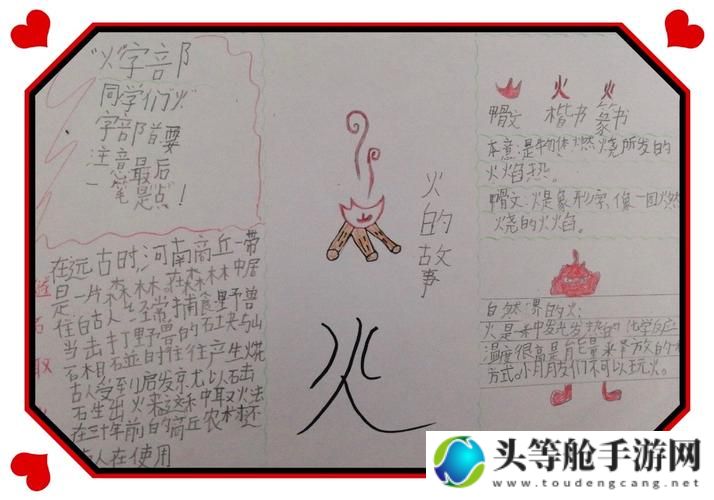 "火"字部
同学们"火"
字部首要
注意最后
一笔是点！
在远古时,河南商丘一带
是一片森林。在森林中居
在白古人经常捕食野兽
当击打野兽的石块与山
石相碰时往往产生火花
古人受到启发京尤以石击
石生出火来这种取火法
在三十年前的商丘农村还
有人在使用
取
火的故事
火
火 火
甲骨文 楷书 篆书
本意:是物体燃烧所发的
火焰热。
甲骨文:火是象形字,像一团燃
烧的火焰。
自然界的火:
火是一种发光发热的化学反应
温度很高是能量释放的
方式。小朋友们不可以玩火。
头等舱手游网
www.toudengcang.net